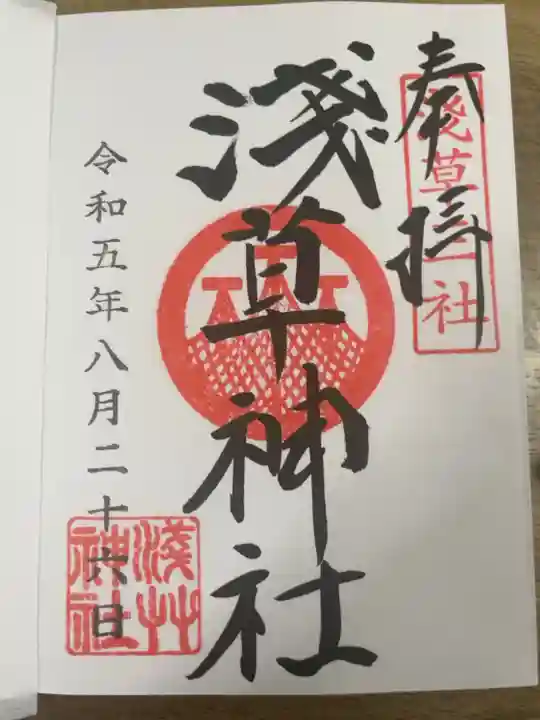 奉拝
淺草三社
淺草神社
令和五年八月二十六日
淺草神社